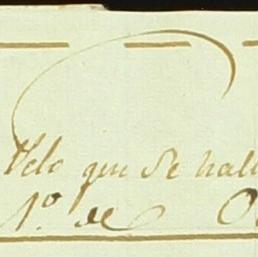 Velo que se hall
1º. de O